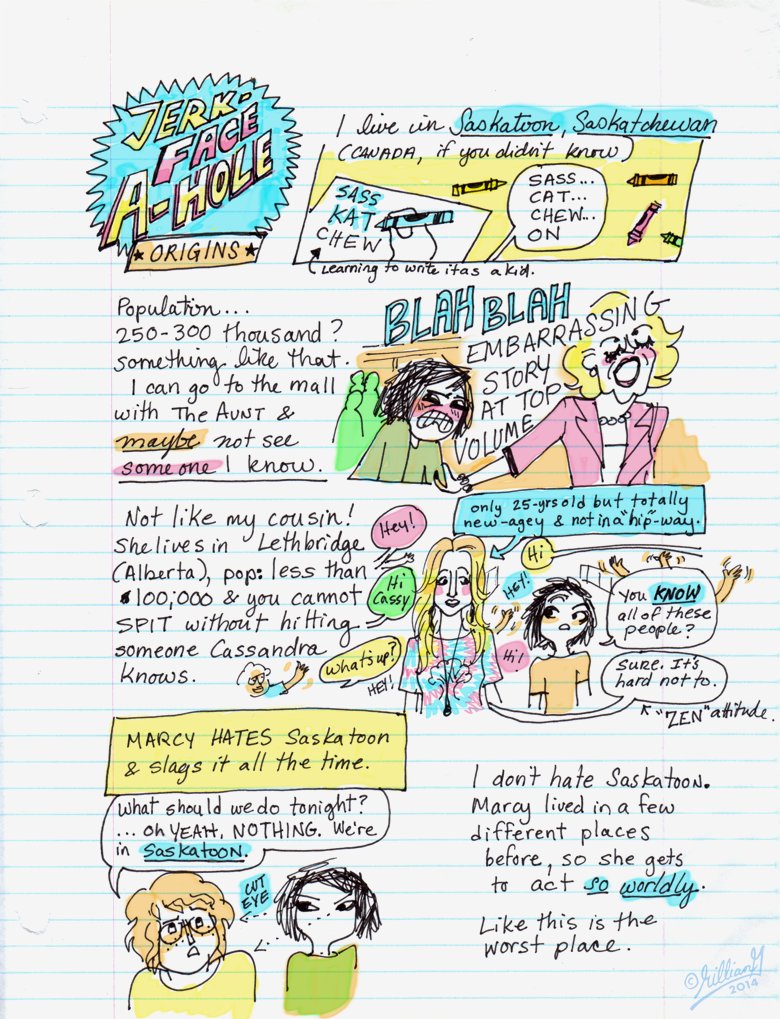 JERK-
FACE
A-HOLE
★ ORIGINS ★
I live in Saskatoon, Saskatchewan
(CANADA, if you didn't know)
SASS
KAT
CHEW
SASS...
CAT...
CHEW...
ON
Learning to write it as a kid.
Population...
250-300 thousand?
something like that.
I can go to the mall
with The Aunt &
maybe not see
someone I know.
BLAH BLAH
EMBARRASSING
STORY
AT TOP
VOLUME
Not like my cousin!
She lives in Lethbridge
(Alberta), pop: less than
100,000 & you cannot
SPIT without hitting
someone Cassandra
knows.
only 25-yrs old but totally
new-agey & not in a "hip" way.
Hey!
Hi
Cassy
What's up?
HEY!
Hi
HEY!
Hi!
You KNOW
all of these
people?
Sure. It's
hard not to.
"ZEN" attitude.
MARCY HATES Saskatoon
& slags it all the time.
What should we do tonight?
... oh YEAH, NOTHING. We're
in Saskatoon.
CUT
EYE
I don't hate Saskatoon.
Marcy lived in a few
different places
before, so she gets
to act so worldly.
Like this is the
worst place.
© Gillian G
2014